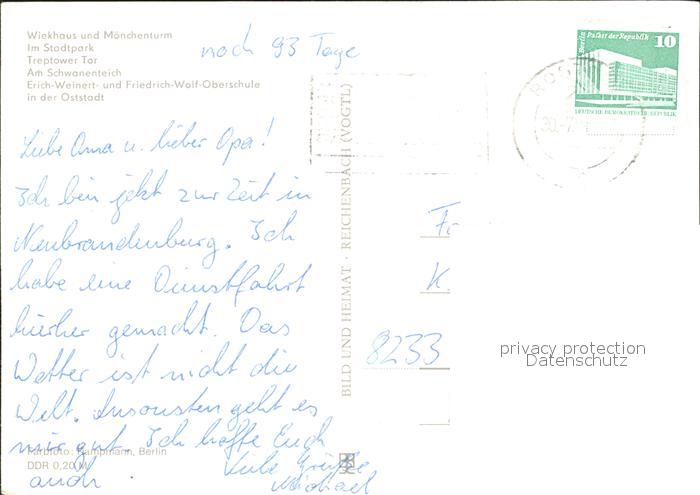 Wiekhaus und Mönchenturm
Im Stadtpark
Treptower Tor
Am Schwanenteich
Erich-Weinert- und Friedrich-Wolf-Oberschule
in der Oststadt
noch 93 Tage
Berlin Palast der Republik 10
DEUTSCHE DEMOKRATISCHE REPUBLIK
Liebe Oma u. lieber Opa!
Ich bin jetzt zur Zeit in
Neubrandenburg. Ich
habe eine Dienstfahrt
hierher gemacht. Das
Wetter ist nicht die
Welt. Ansonsten geht es
mir gut. Ich hoffe Euch
auch
Viele Grüße
Michael
BILD UND HEIMAT · REICHENBACH (VOGTL)
Fr
K
8233
privacy protection
Datenschutz
Farbfoto: Kampmann, Berlin
DDR 0,20 M